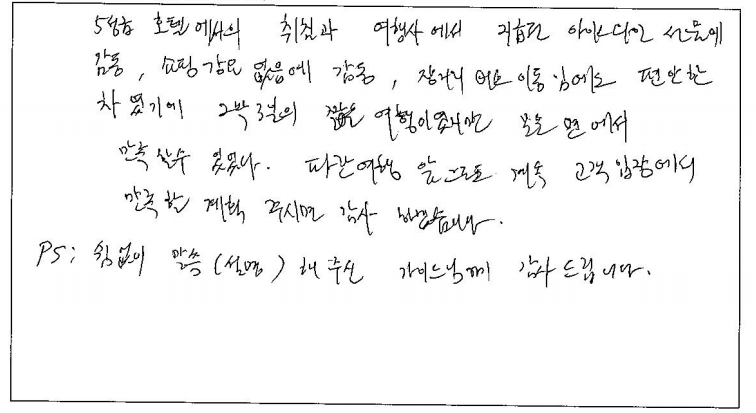 5성급 호텔에서의 취침과 여행사에서 지급된 아이스와인 선물에
감동, 쇼핑강요 없음에 감동, 장거리 버스 이동임에도 편안한
차였기에 2박3일의 짧은 여행이었지만 모든 면에서
만족 할수 있었다. 파란여행 앞으로도 계속 고객입장에서
만족한 계획 주시면 감사 하겠습니다.
PS; 쉼없이 말씀(설명)해 주신 가이드님께 감사드립니다.